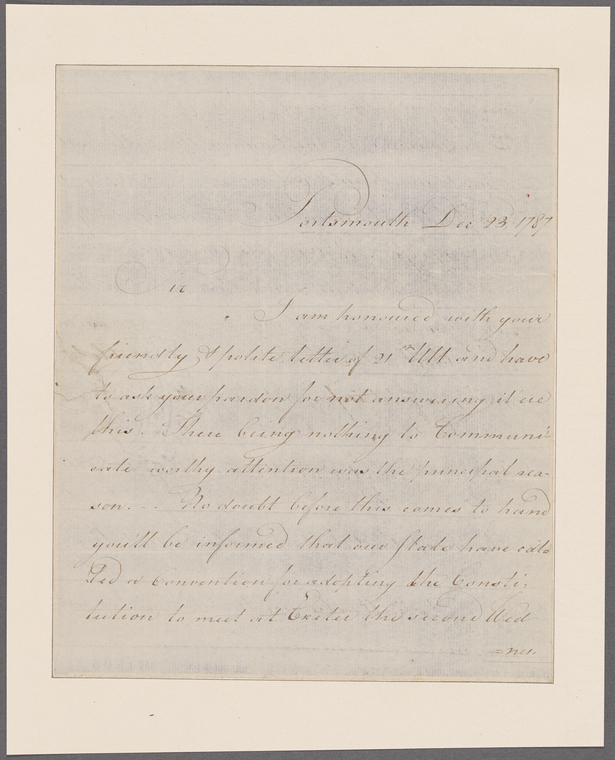 Portsmouth Dec 23, 1787
Sir
I am honoured with your
friendly & polite letter of 21st Ult and have
to ask your pardon for not answering it ere
this. There being nothing to Communi-
cate worthy attention was the principal rea-
son. -- No doubt before this comes to hand
youll be informed that our State have cal-
led a Convention for adopting the Consti-
tution to meet at Exeter the second Wed
=nes.